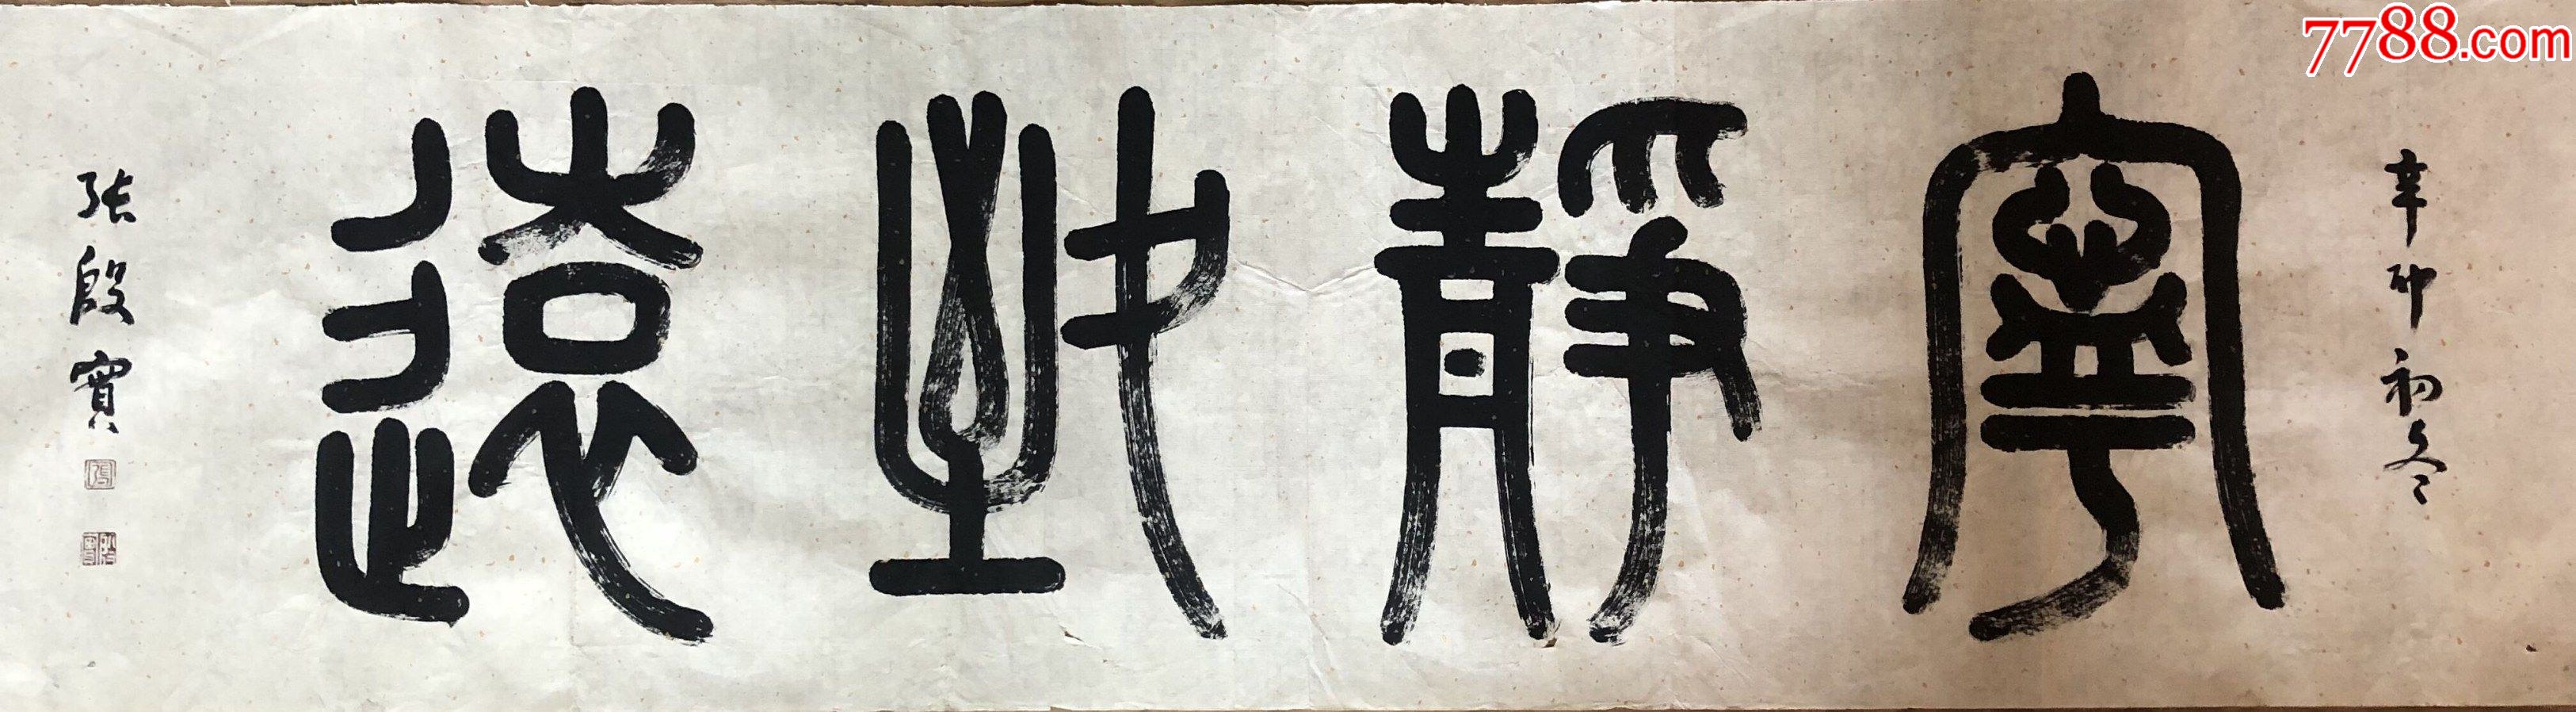 7788.com
辛卯初冬
寧靜致遠
張殷實